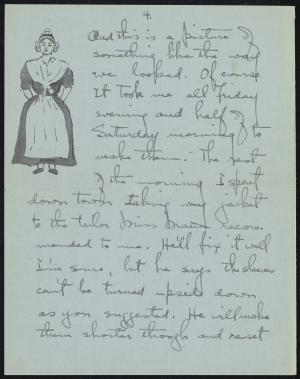 4.
And this is a picture of
something like the way
we looked. Of course
It took me all Friday
evening and half of
Saturday morning to
make them. The rest
of the morning I spent
down town taking my jacket
to the tailor Miss recom-
mended to me. He'll fix it well
I'm sure, but he says the sleeves
can't be turned upside down
as you suggested. He will make
them shorter though and reset